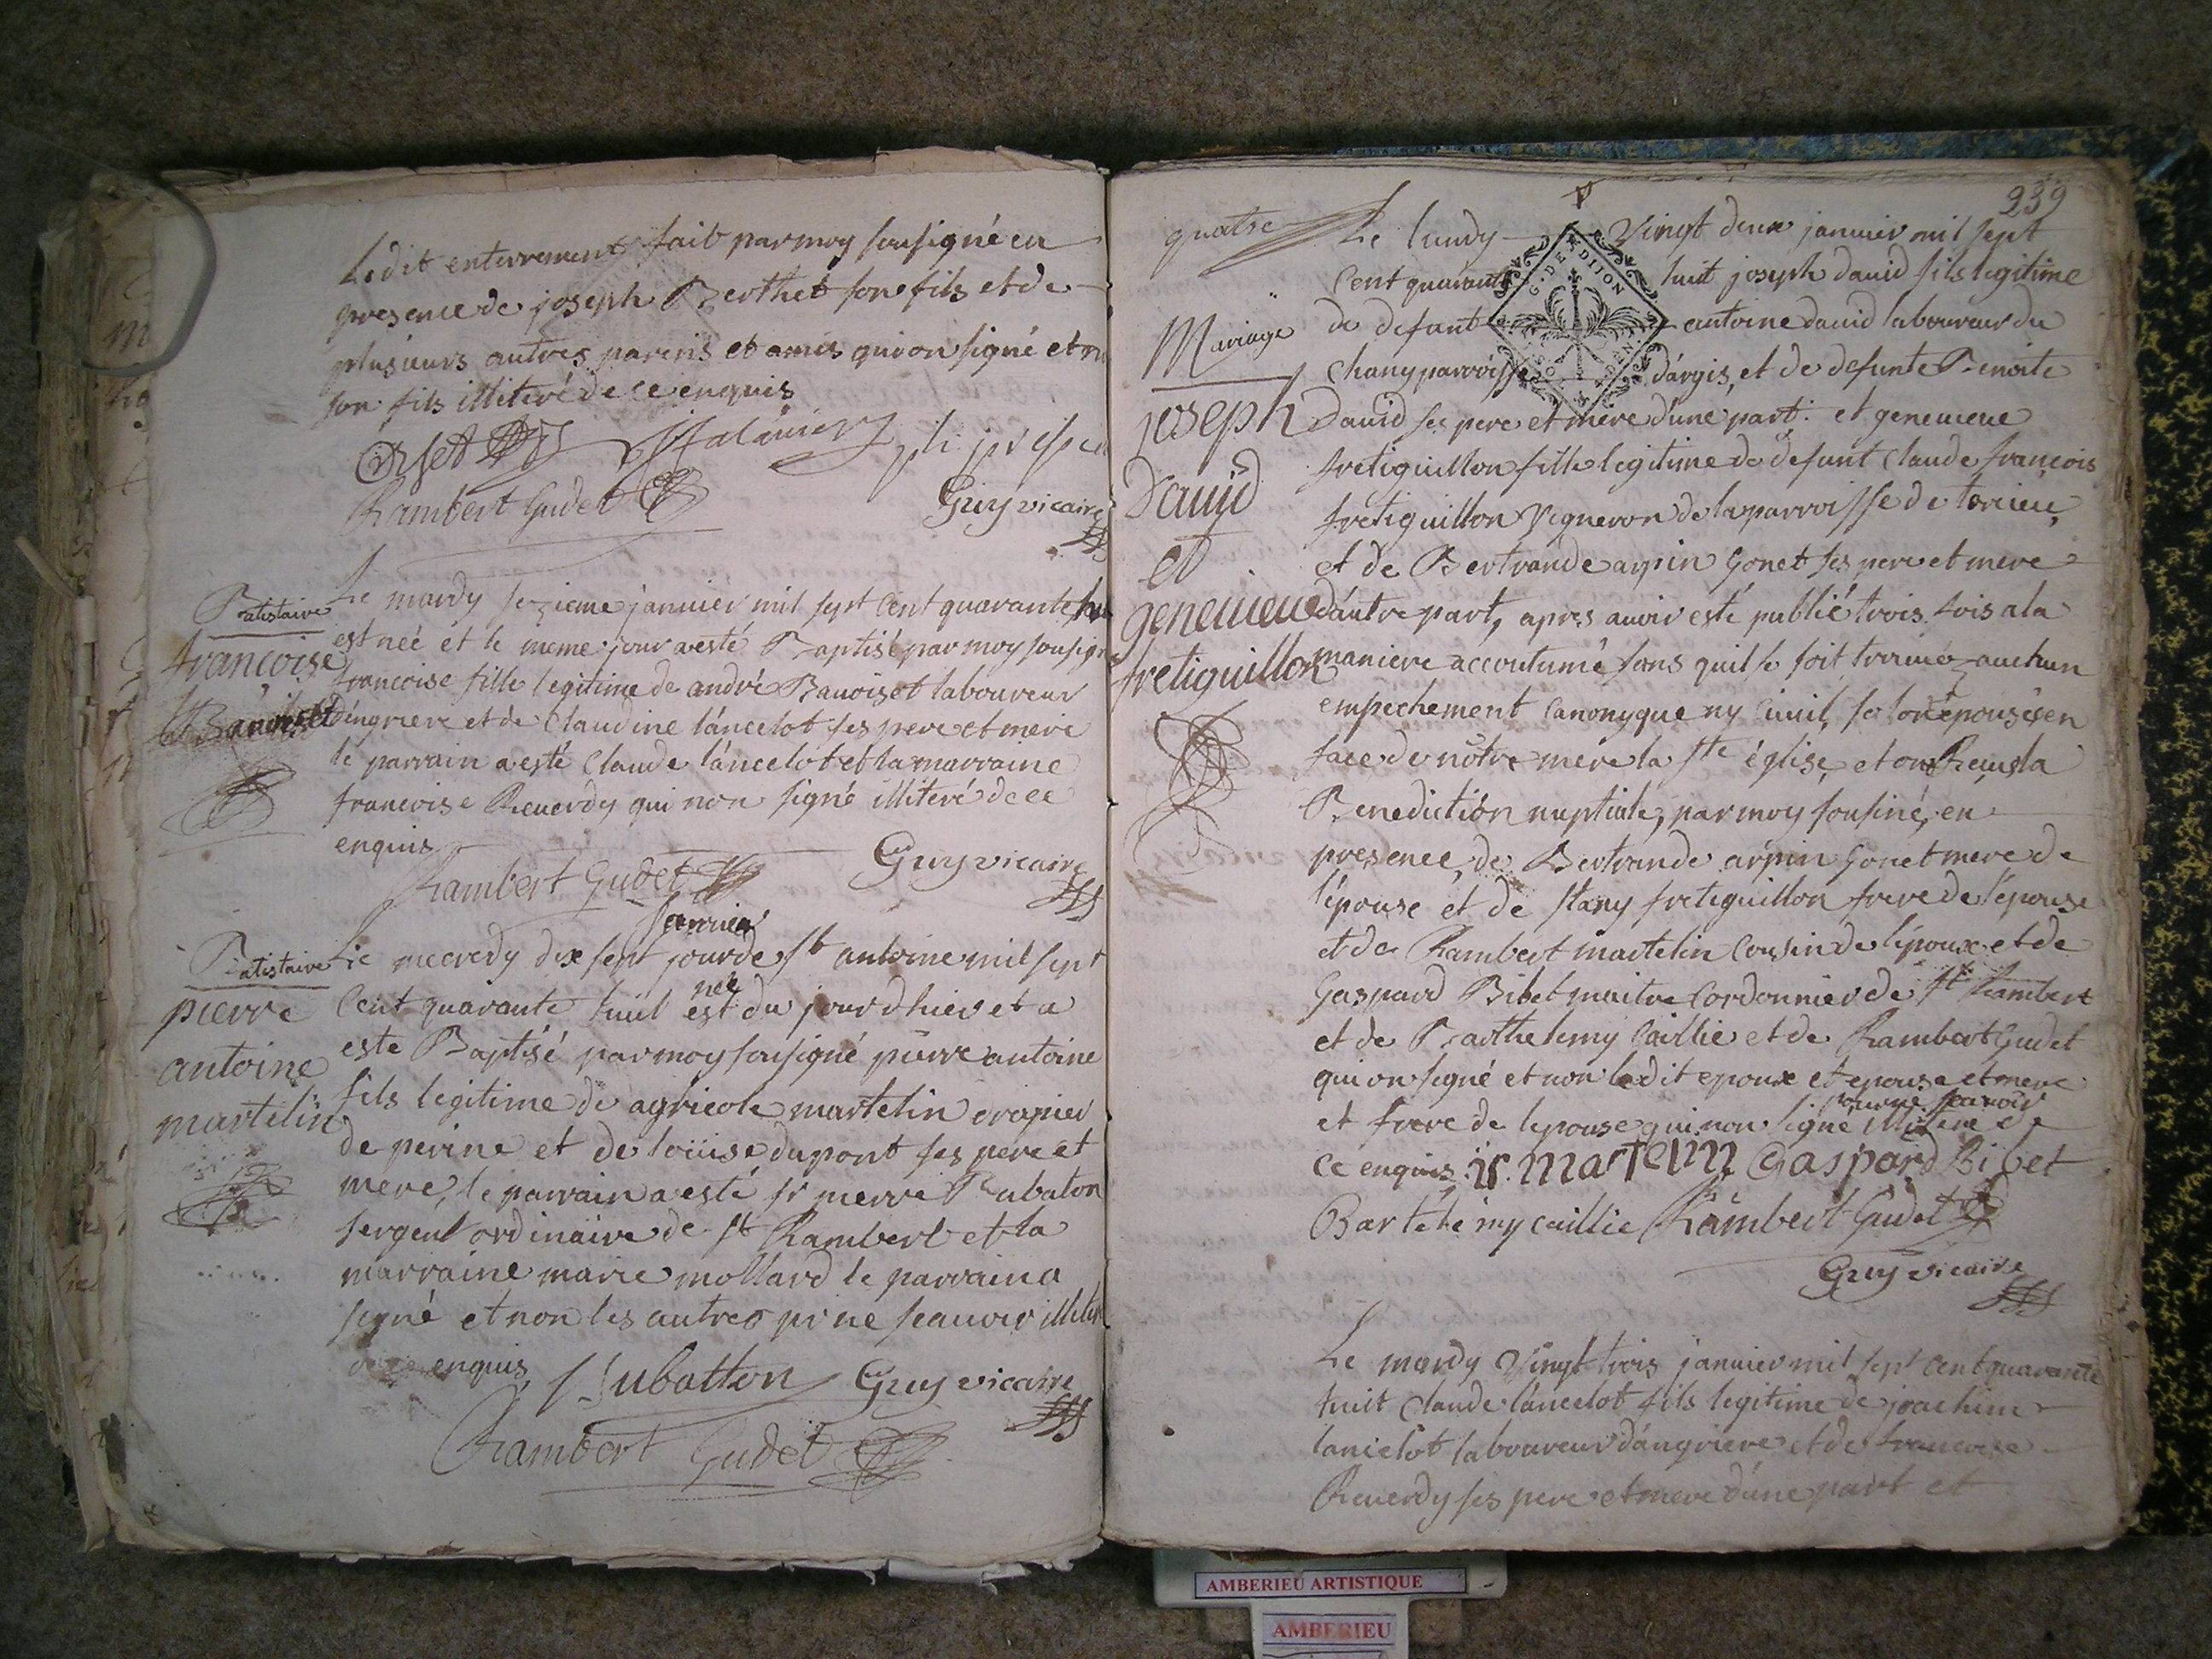 Ledit enterrement fait par moy sousigné en
presence de joseph Berthet son fils et de
plusieurs autres parens et amis qui on signé et n
son fils illiteré de ce enquis
Orset
Rambert Gudet
Guy vicaire
Batistaire
francoise
Bauoiset
Le mardy sezieme januier mil sept cent quarante
est neé et le meme jour a esté Baptisé par moy sousigné
francoise fille legitime de andré Bauoiset laboureur
dángriere et de Claudine láncelot ses pere et mere
le parrain a esté Claude láncelot et la marraine
francoise Reuerdy qui non signé illiteré de ce
enquis
Guy vicaire
Rambert Gudet
Batistaire
pierre
antoine
martelin
januier
Le mecredy dix sept jour de st antoine mil sept
neé
Cent quarante huit est du jour dhier et a
este Baptisé par moy sousigné pierre antoine
fils legitime de agricole martelin drapier
de perine et de loüise dupont ses pere et
mere, le parrain a esté sr pierre Rubaton
sergent ordinaire de st Rambert et la
marraine marie mollard le parrain a
signé et non les autres pr ne scauoir illiter
de ce enquis
Rubatton Guy vicaire
Rambert Gudet
239
quatre
Mariage
joseph
Dauid
et
geneuieue
fretiguillon
G. DE DIJON
Le lundy Vingt deux januier mil sept
Cent quarante huit joseph dauid fils legitime
de defunt antoine dauid laboureur du
Chany parroisse dárgis, et de defunte Benoite
Dauid ses pere et mere dúne part. et geneuieue
fretiguillon fille legitime de defunt Claude francois
fretiguillon Vigneron de la parroisse de torcieu,
et de Bertrande arpin Gonet ses pere et mere
dáutre part, apres auoir esté publié trois fois a la
maniere accoutumé sans quil se soit trouué auchun
empechement Canonyque ny Ciuil, se son épousés en
face de nôtre mére la ste église, et on Reçus la
Benediction nuptiale, par moy sousiné, en
presence, de Bertrande arpin Gonet mere de
lépouse et de stany fretiguillon frere de lépouse
et de Rambert martelin Cousin de lépoux et de
Gaspard Bibet maitre Cordonnier de st Rambert
et de Barthelemy Caillie et de Rambert Gudet
qui on signé et non ledit epoux et epouse et mere
pour ne scauoir
et frere de lepouse qui non signé illiteré de
ce enquis. r. marTelin Gaspard Bibet
Bartelemy caillie Rambert Gudet
Guy vicaire
Le mardy Vingt trois januier mil sept Cent quarante
huit Claude láncelot fils legitime de joachim
lancelot laboureur dángriere et de francoise
Reuerdy ses pere et mere dúne part et
AMBERIEU ARTISTIQUE
AMBERIEU